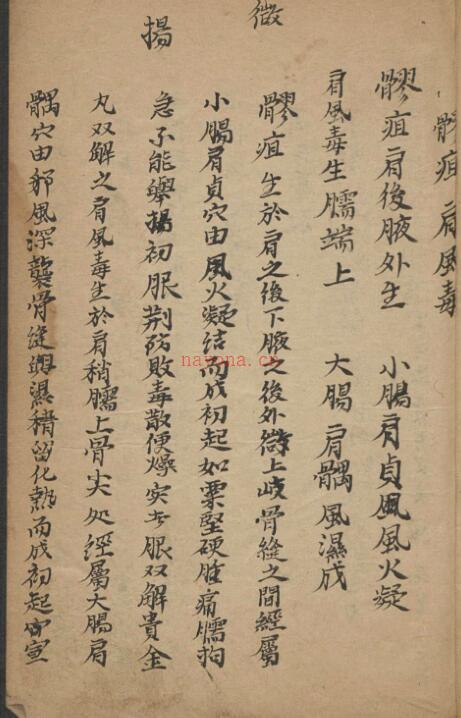 髎疽 肩風毒
髎疽肩後腋外生 小腸肩貞風風火凝
肩風毒生臑端上 大腸肩髃風濕成
微
髎疽生於肩之後下腋之後外微上岐骨縫之間經屬
小腸肩貞穴由風火凝結而成初起如粟堅硬腫痛臑拘
揚
急不能舉揚初服荊防敗毒散便燥实者服双解貴金
丸双解之肩風毒生於肩稍臑上骨尖处經屬大腸肩
髃穴由邪風深襲骨縫與濕稽留化熱而成初起宣
nayona.cn